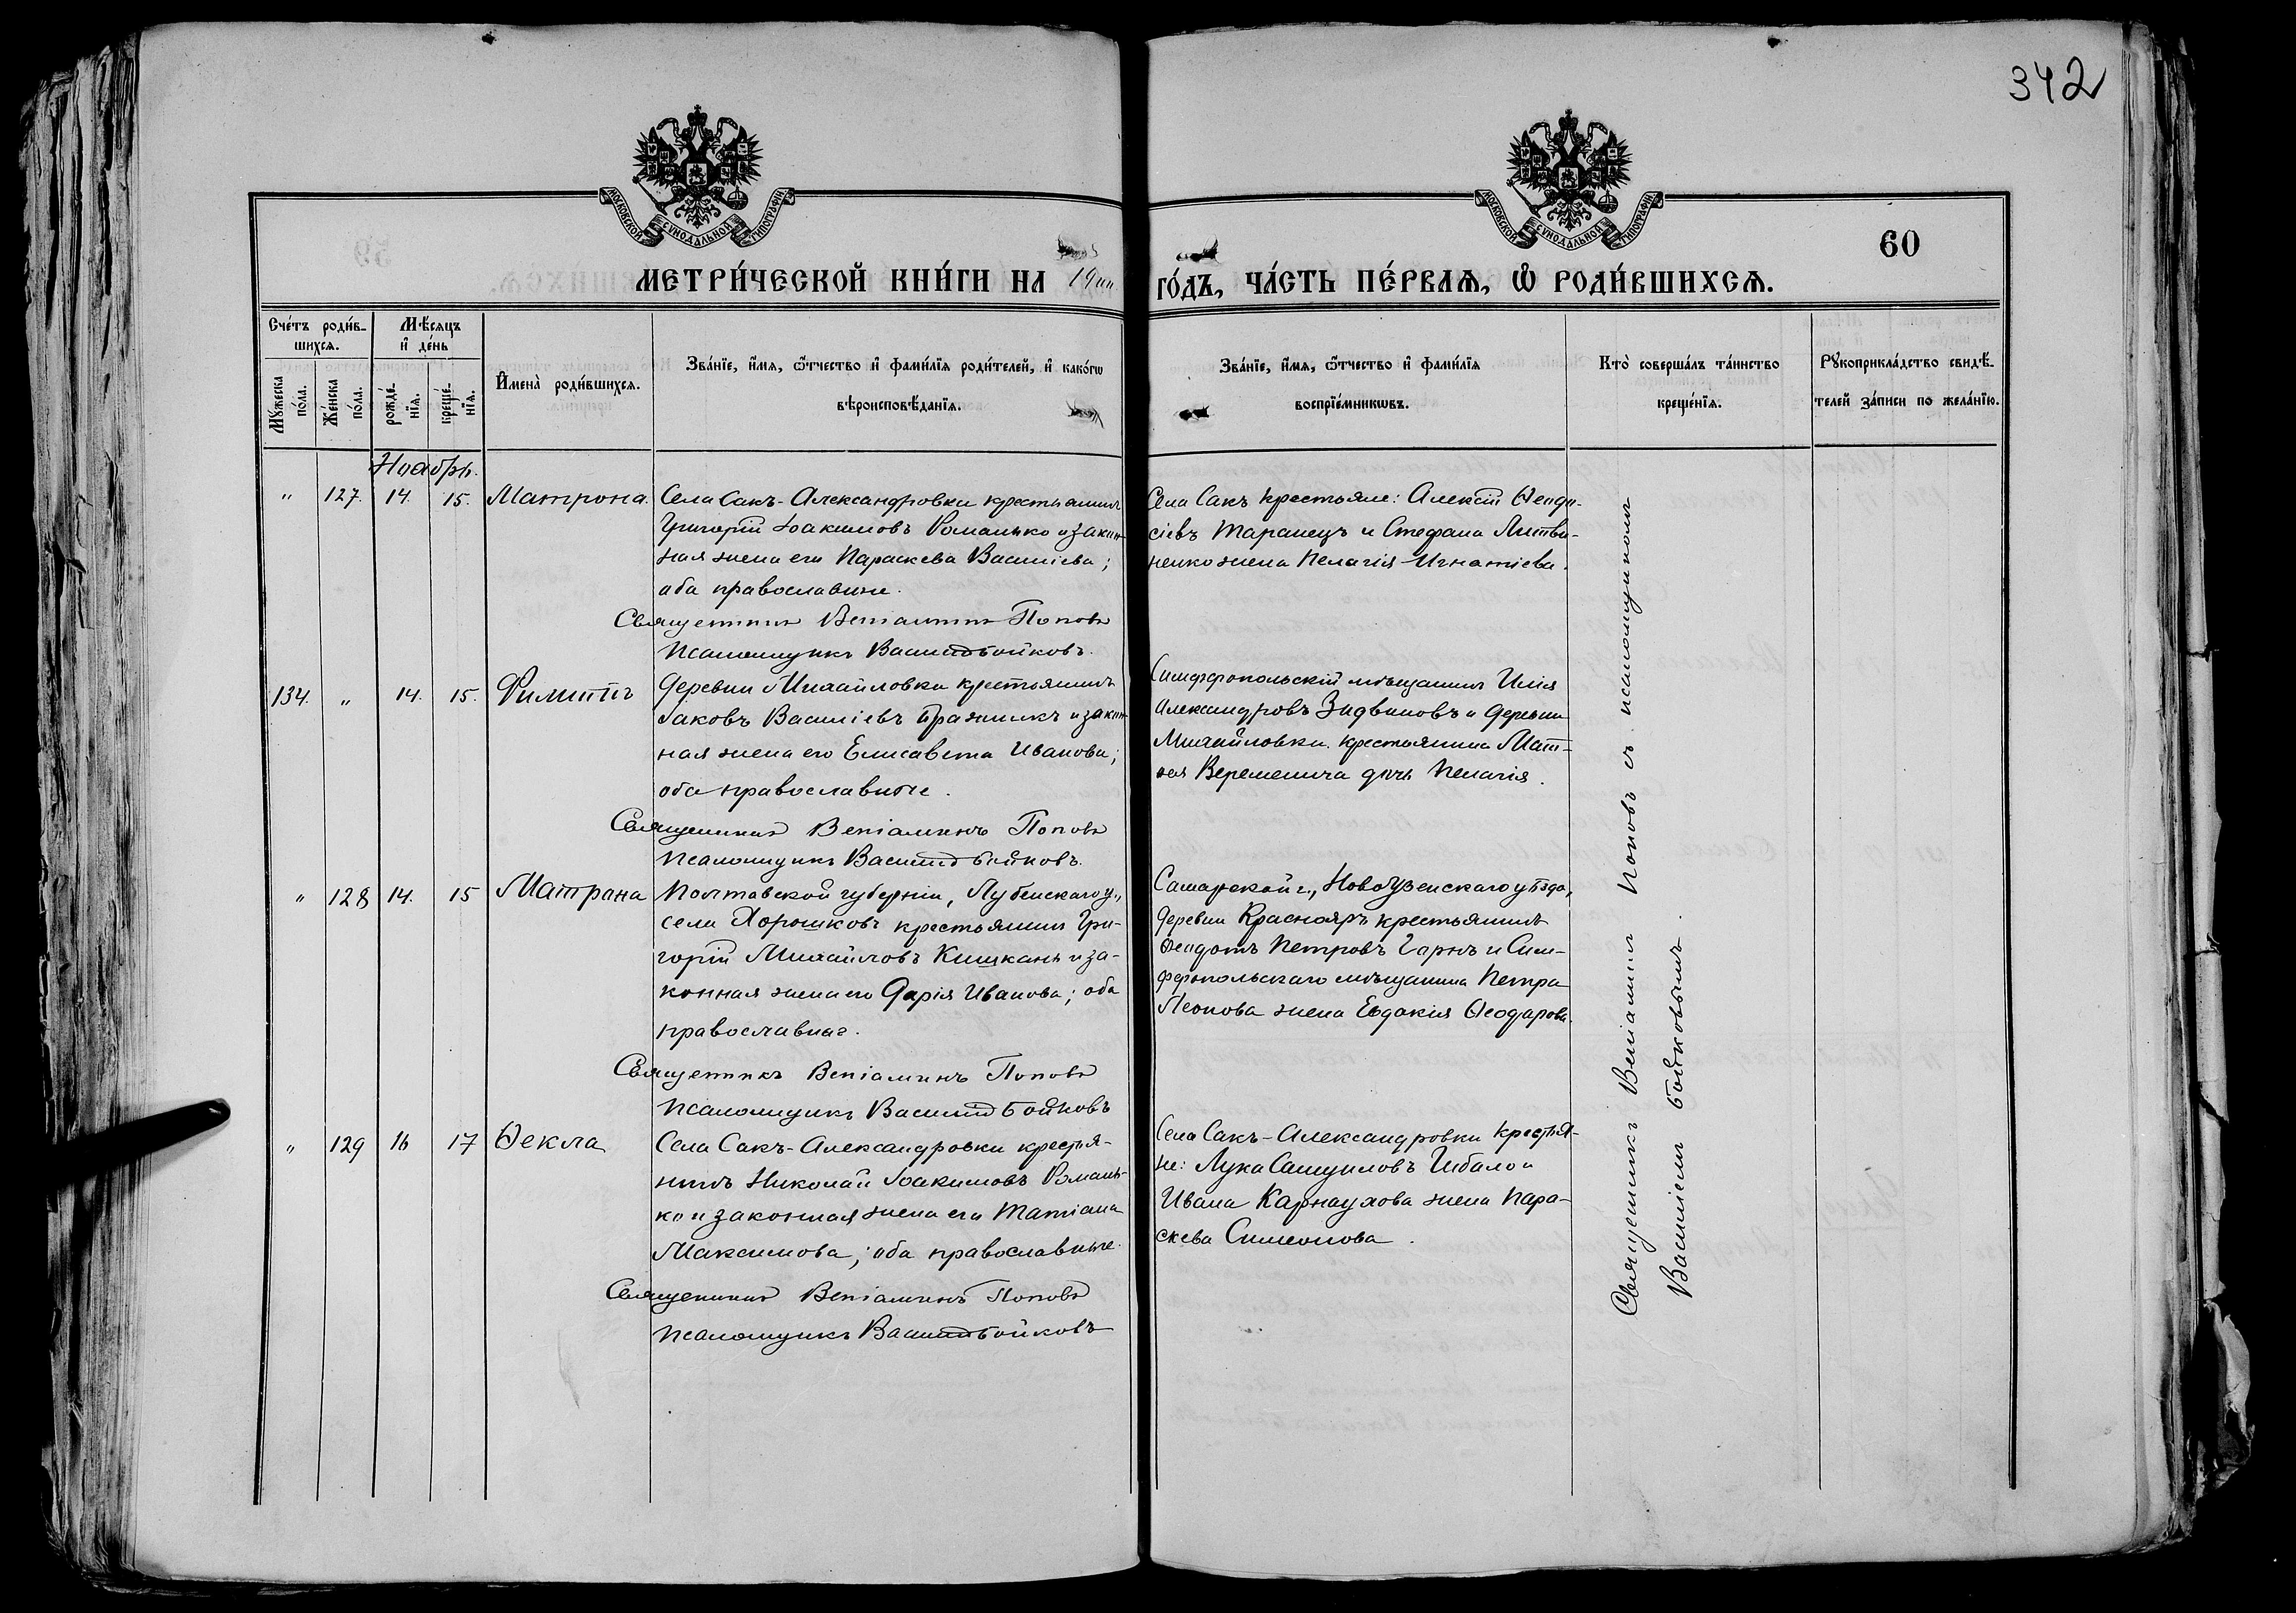 342
МОСКОВСКОЙ СѴНОДАЛЬНОЙ ТИПОГРАФІИ
МОСКОВСКОЙ СѴНОДАЛЬНОЙ ТИПОГРАФІИ
60
МЕТРИ́ЧЕСКОЙ КНИ́ГИ НА 19
ГО́ДЪ, ЧА́СТЬ ПЕ́РВАѦ, Ѽ РОДИ́ВШИХСѦ.
Сче́тъ роди́в-
шихсѧ.
Мѣ́сѧцъ
и҆ де́нь
Мꙋ́жеска по́ла.
Же́нска по́ла.
рожде́-
нїѧ.
креще́-
нїѧ.
И҆мена̀ роди́вшихсѧ.
Зва́нїе, и҆́мѧ, ѻ҆́тчество и҆ фами́лїѧ роди́телей, и҆ како́гѡ
вѣроисповѣ́данїѧ.
Зва́нїе, и҆́мѧ, ѻ҆́тчество и҆ фами́лїѧ
воспрїе́мникѡвъ.
Кто̀ соверша́лъ та́инство
креще́нїѧ.
Рꙋкоприкла́дство свидѣ́-
телей за́писи по жела́нїю.
Ноябрь.
" 127. 14. 15. Матрона. Села Сакъ-Александровки крестьянинъ
Григорій Іоакимовъ Романько и закон-
ная жена его Параскева Василіева;
оба православные.
Священникъ Веніаминъ Поповъ
Псаломщикъ Василій Бойковъ.
Села Сакъ крестьяне: Алексій Ѳеодо-
сіевъ Таранецъ и Стефана Литви-
ненко жена Пелагія Игнатіева.
134. " 14. 15. Филиппъ Деревни Михайловки крестьянинъ
Іаковъ Василіевъ Бражникъ и закон-
ная жена его Елисавета Иванова;
оба православные.
Священникъ Веніаминъ Поповъ
Псаломщикъ Василій Бойковъ.
Симферопольскій мѣщанинъ Илія
Александровъ и деревни
Михайловки крестьянина Мат-
ѳея Веременича дочь Пелагія.
" 128 14. 15 Матрона Полтавской губерніи, Лубенскаго у.,
села Хорошковъ крестьянинъ Гри-
горій Михайловъ Кишкань и за-
конная жена его Дарія Иванова; оба
православные.
Священникъ Веніаминъ Поповъ
Псаломщикъ Василій Бойковъ
Самарской г., Новоузенскаго уѣзда,
деревни Красноярь крестьянинъ
Ѳеодотъ Петровъ и Сим-
феропольскаго мѣщанина Петра
Леонова жена Евдокія Ѳеодорова.
" 129 16 17 Ѳекла Села Сакъ-Александровки крестья-
нинъ Николай Іоакимовъ Романь-
ко и законная жена его Татіана
Максимова; оба православные.
Священникъ Веніаминъ Поповъ
Псаломщикъ Василій Бойковъ
Села Сакъ-Александровки крестья-
не: Лука Самуиловъ и
Ивана Карнаухова жена Пара-
скева Симеонова.
Священникъ Веніаминъ Поповъ съ псаломщикомъ
Василіемъ Бойковымъ.